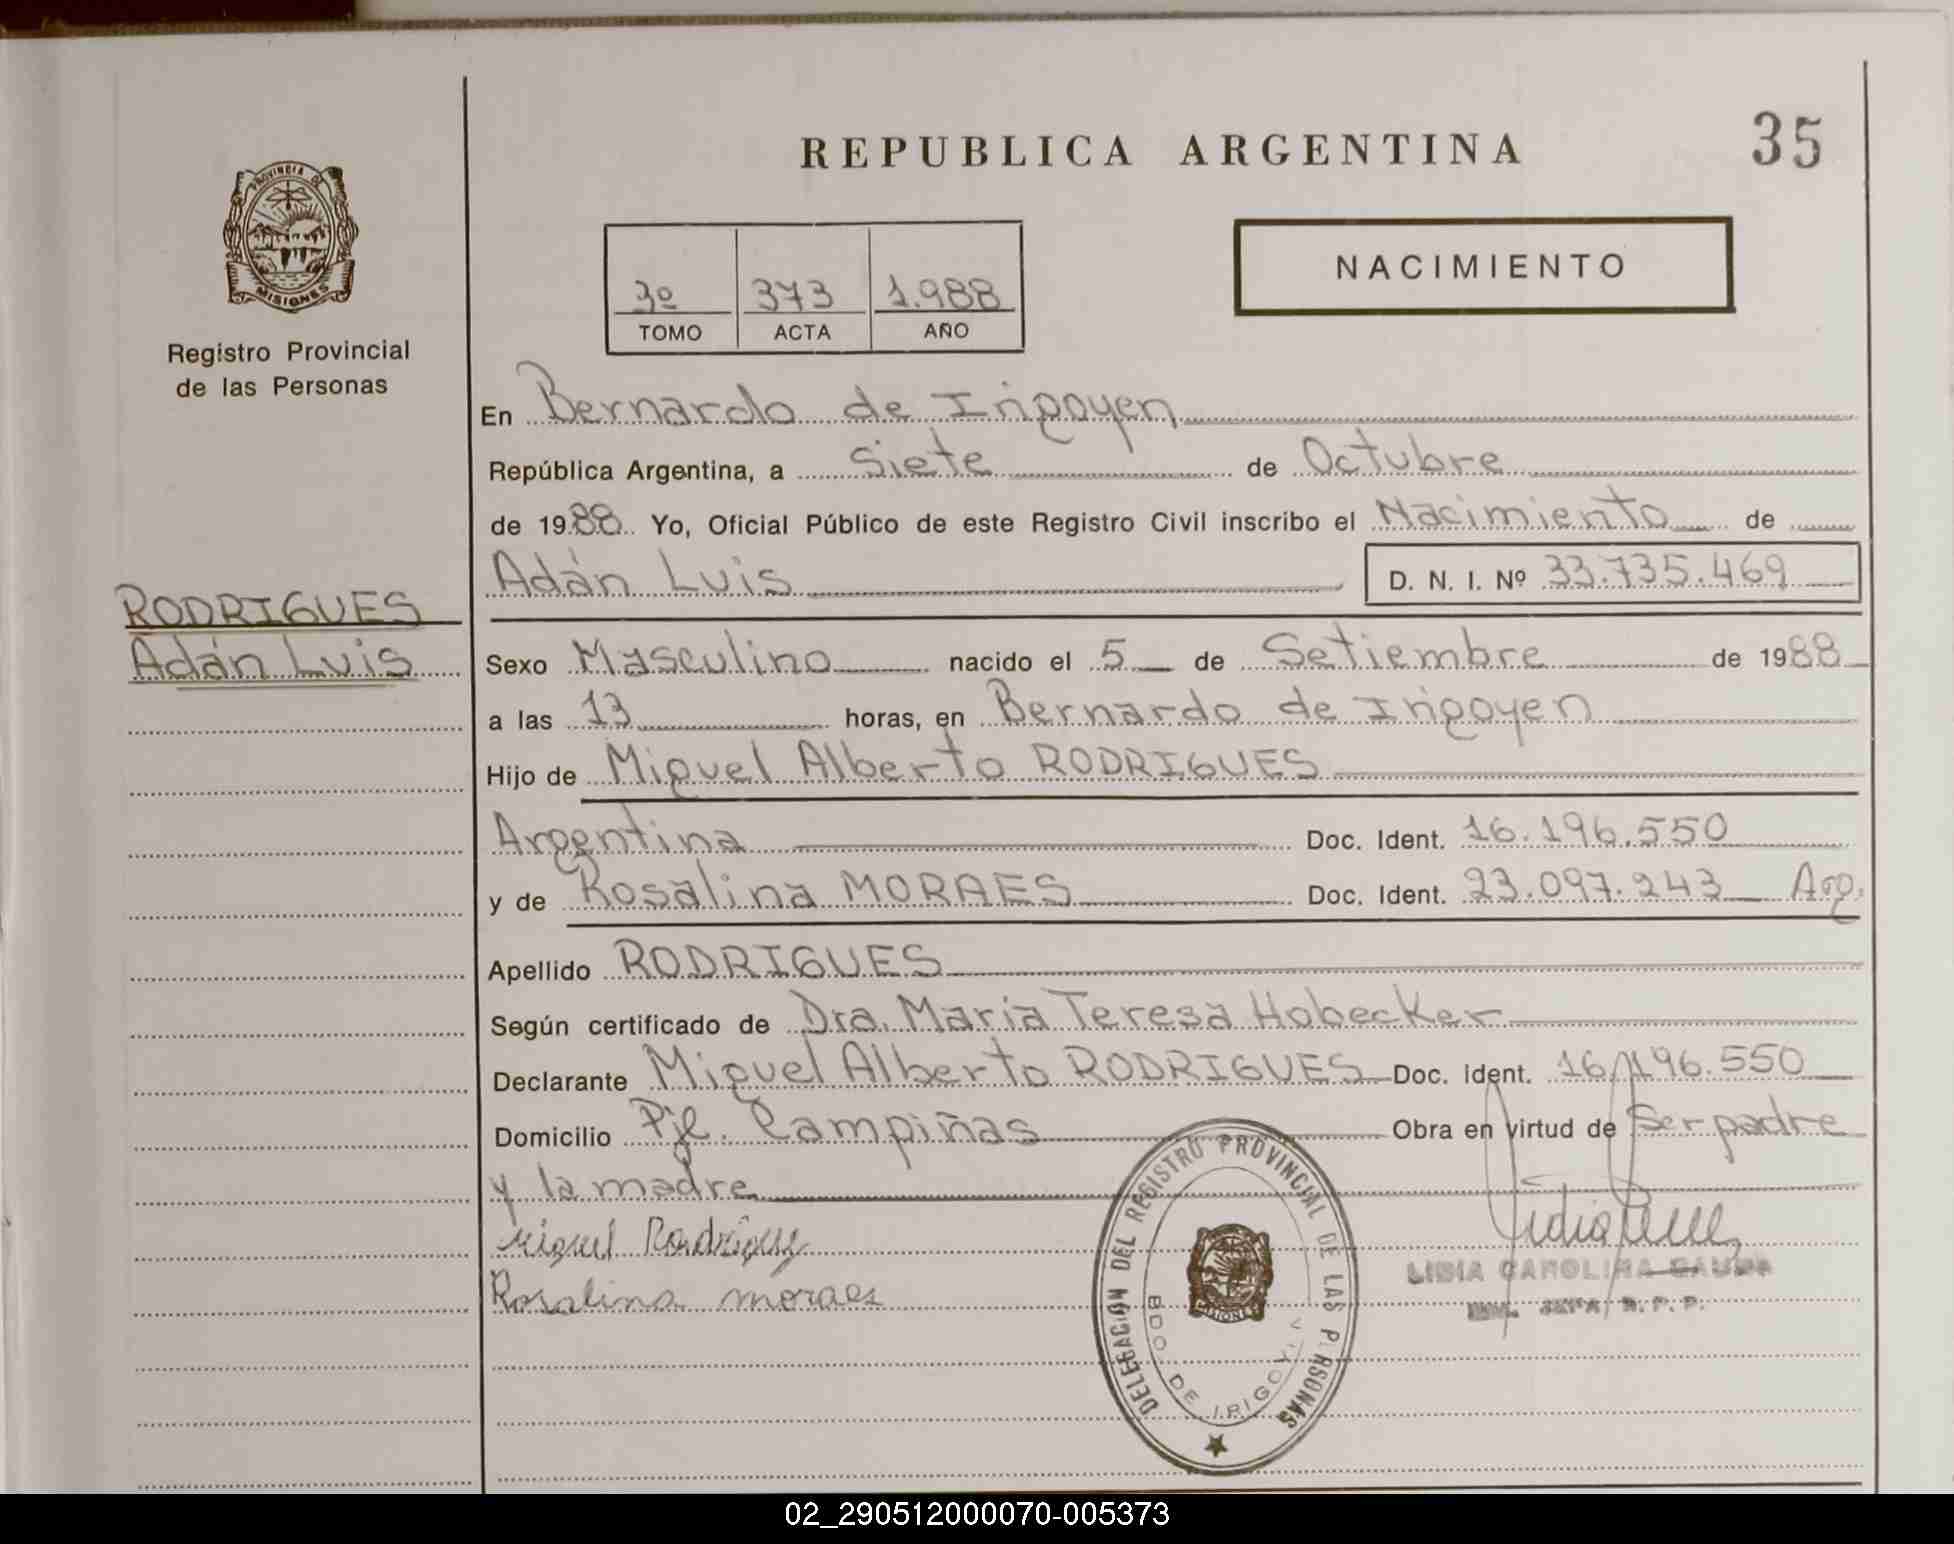 REPUBLICA ARGENTINA
35
PROVINCIA DE
MISIONES
Registro Provincial
de las Personas
3º 373 1.988
TOMO ACTA AÑO
NACIMIENTO
En Bernardo de Irigoyen
República Argentina, a Siete de Octubre
de 1988 Yo, Oficial Público de este Registro Civil inscribo el Nacimiento de
Adán Luis D. N. I. Nº 33.735.469
RODRIGUES
Adán Luis
Sexo Masculino nacido el 5 de Setiembre de 1988
a las 13 horas, en Bernardo de Irigoyen
Hijo de Miguel Alberto RODRIGUES
Argentina Doc. Ident. 16.196.550
y de Rosalina MORAES Doc. Ident. 23.097.243 Arg.
Apellido RODRIGUES
Según certificado de Dra. María Teresa Hobecker
Declarante Miguel Alberto RODRIGUES Doc. ident. 16.196.550
Domicilio Pje. Campiñas Obra en virtud de Ser padre
y la madre
Miguel Rodriguez
Rosalina moraes
DELEGACIÓN DEL REGISTRO PROVINCIAL DE LAS PERSONAS
BDO. DE IRIGOYEN
LIDIA CAROLINA
R. P. P.
02_290512000070-005373